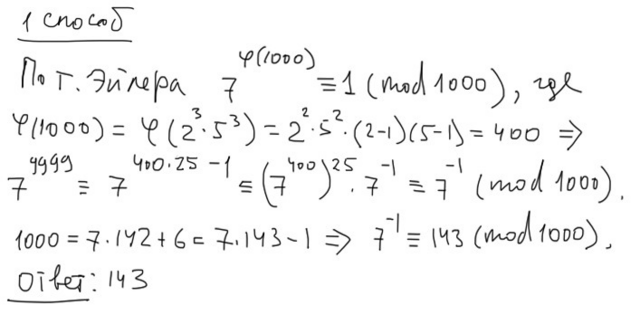 1 способ
По т. Эйлера 7^φ(1000) ≡ 1 (mod 1000), где
φ(1000) = φ(2^3·5^3) = 2^2·5^2·(2-1)(5-1) = 400 ⇒
7^9999 ≡ 7^400·25-1 ≡ (7^400)^25·7^-1 ≡ 7^-1 (mod 1000).
1000 = 7·142+6 = 7·143-1 ⇒ 7^-1 ≡ 143 (mod 1000).
Ответ: 143